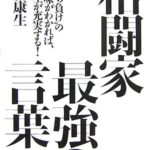 格闘家
最強の
言葉
負けの
味がわかれば、
が充実する!
康生